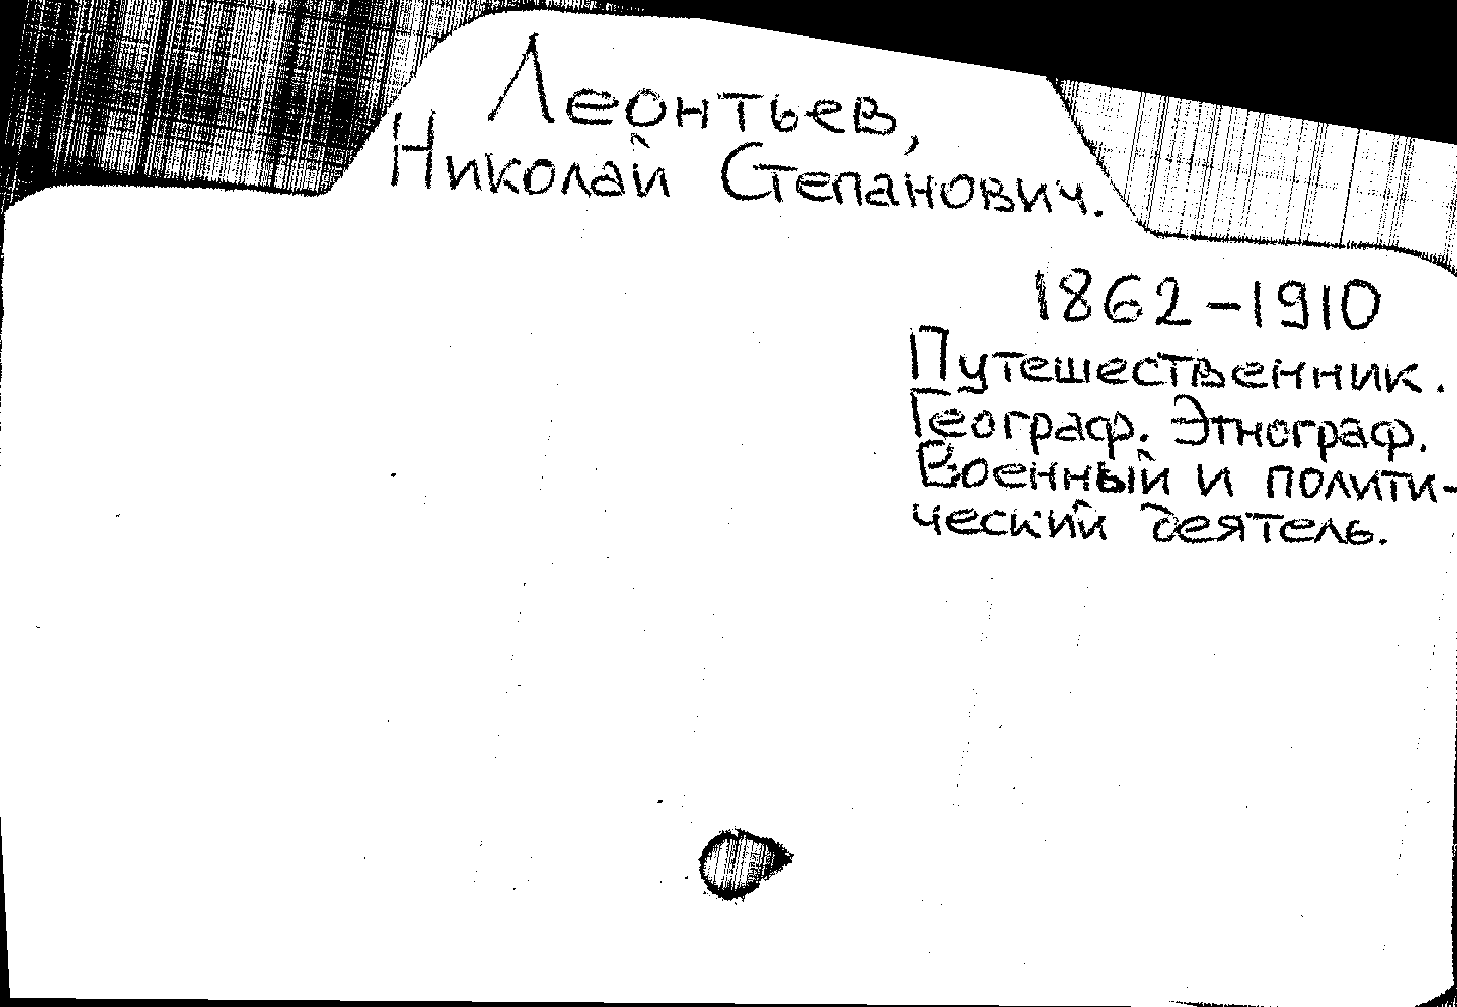 Леонтьев,
Николай Степанович.
1862-1910
Путешественник.
Географ. Этнограф.
Военный и полити-
ческий деятель.